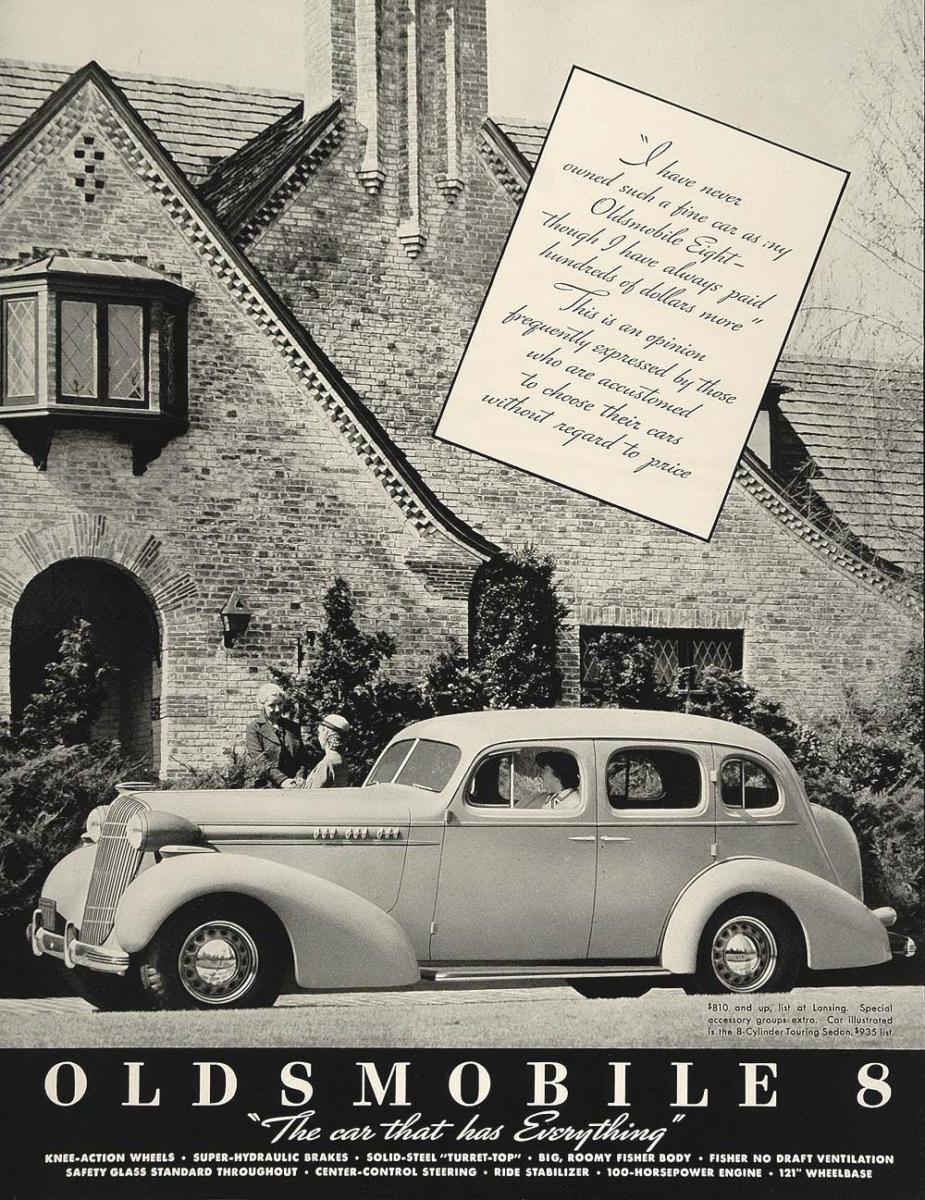 "I have never
owned such a fine car as my
Oldsmobile Eight—
though I have always paid
hundreds of dollars more"
This is an opinion
frequently expressed by those
who are accustomed
to choose their cars
without regard to price
$810 and up, list at Lansing. Special
accessory groups extra. Car illustrated
is the 8-Cylinder Touring Sedan, $935 list.
OLDSMOBILE 8
"The car that has Everything"
KNEE-ACTION WHEELS • SUPER-HYDRAULIC BRAKES • SOLID-STEEL "TURRET-TOP" • BIG, ROOMY FISHER BODY • FISHER NO DRAFT VENTILATION
SAFETY GLASS STANDARD THROUGHOUT • CENTER-CONTROL STEERING • RIDE STABILIZER • 100-HORSEPOWER ENGINE • 121" WHEELBASE